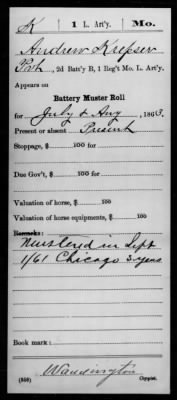 K 1 L. Art'y. Mo.
Andrew Krepser
Pvt., 2d Batt'y B, 1 Reg't Mo. L. Art'y.
Appears on
Battery Muster Roll
for July & Aug, 1863.
Present or absent Present
Stoppage, $ 100 for
Due Gov't, $ 100 for
Valuation of horse, $ 100
Valuation of horse equipments, $ 100
Remarks:
Mustered in Sept
1/61 Chicago 3 years
Book mark:
(358) Copyist.